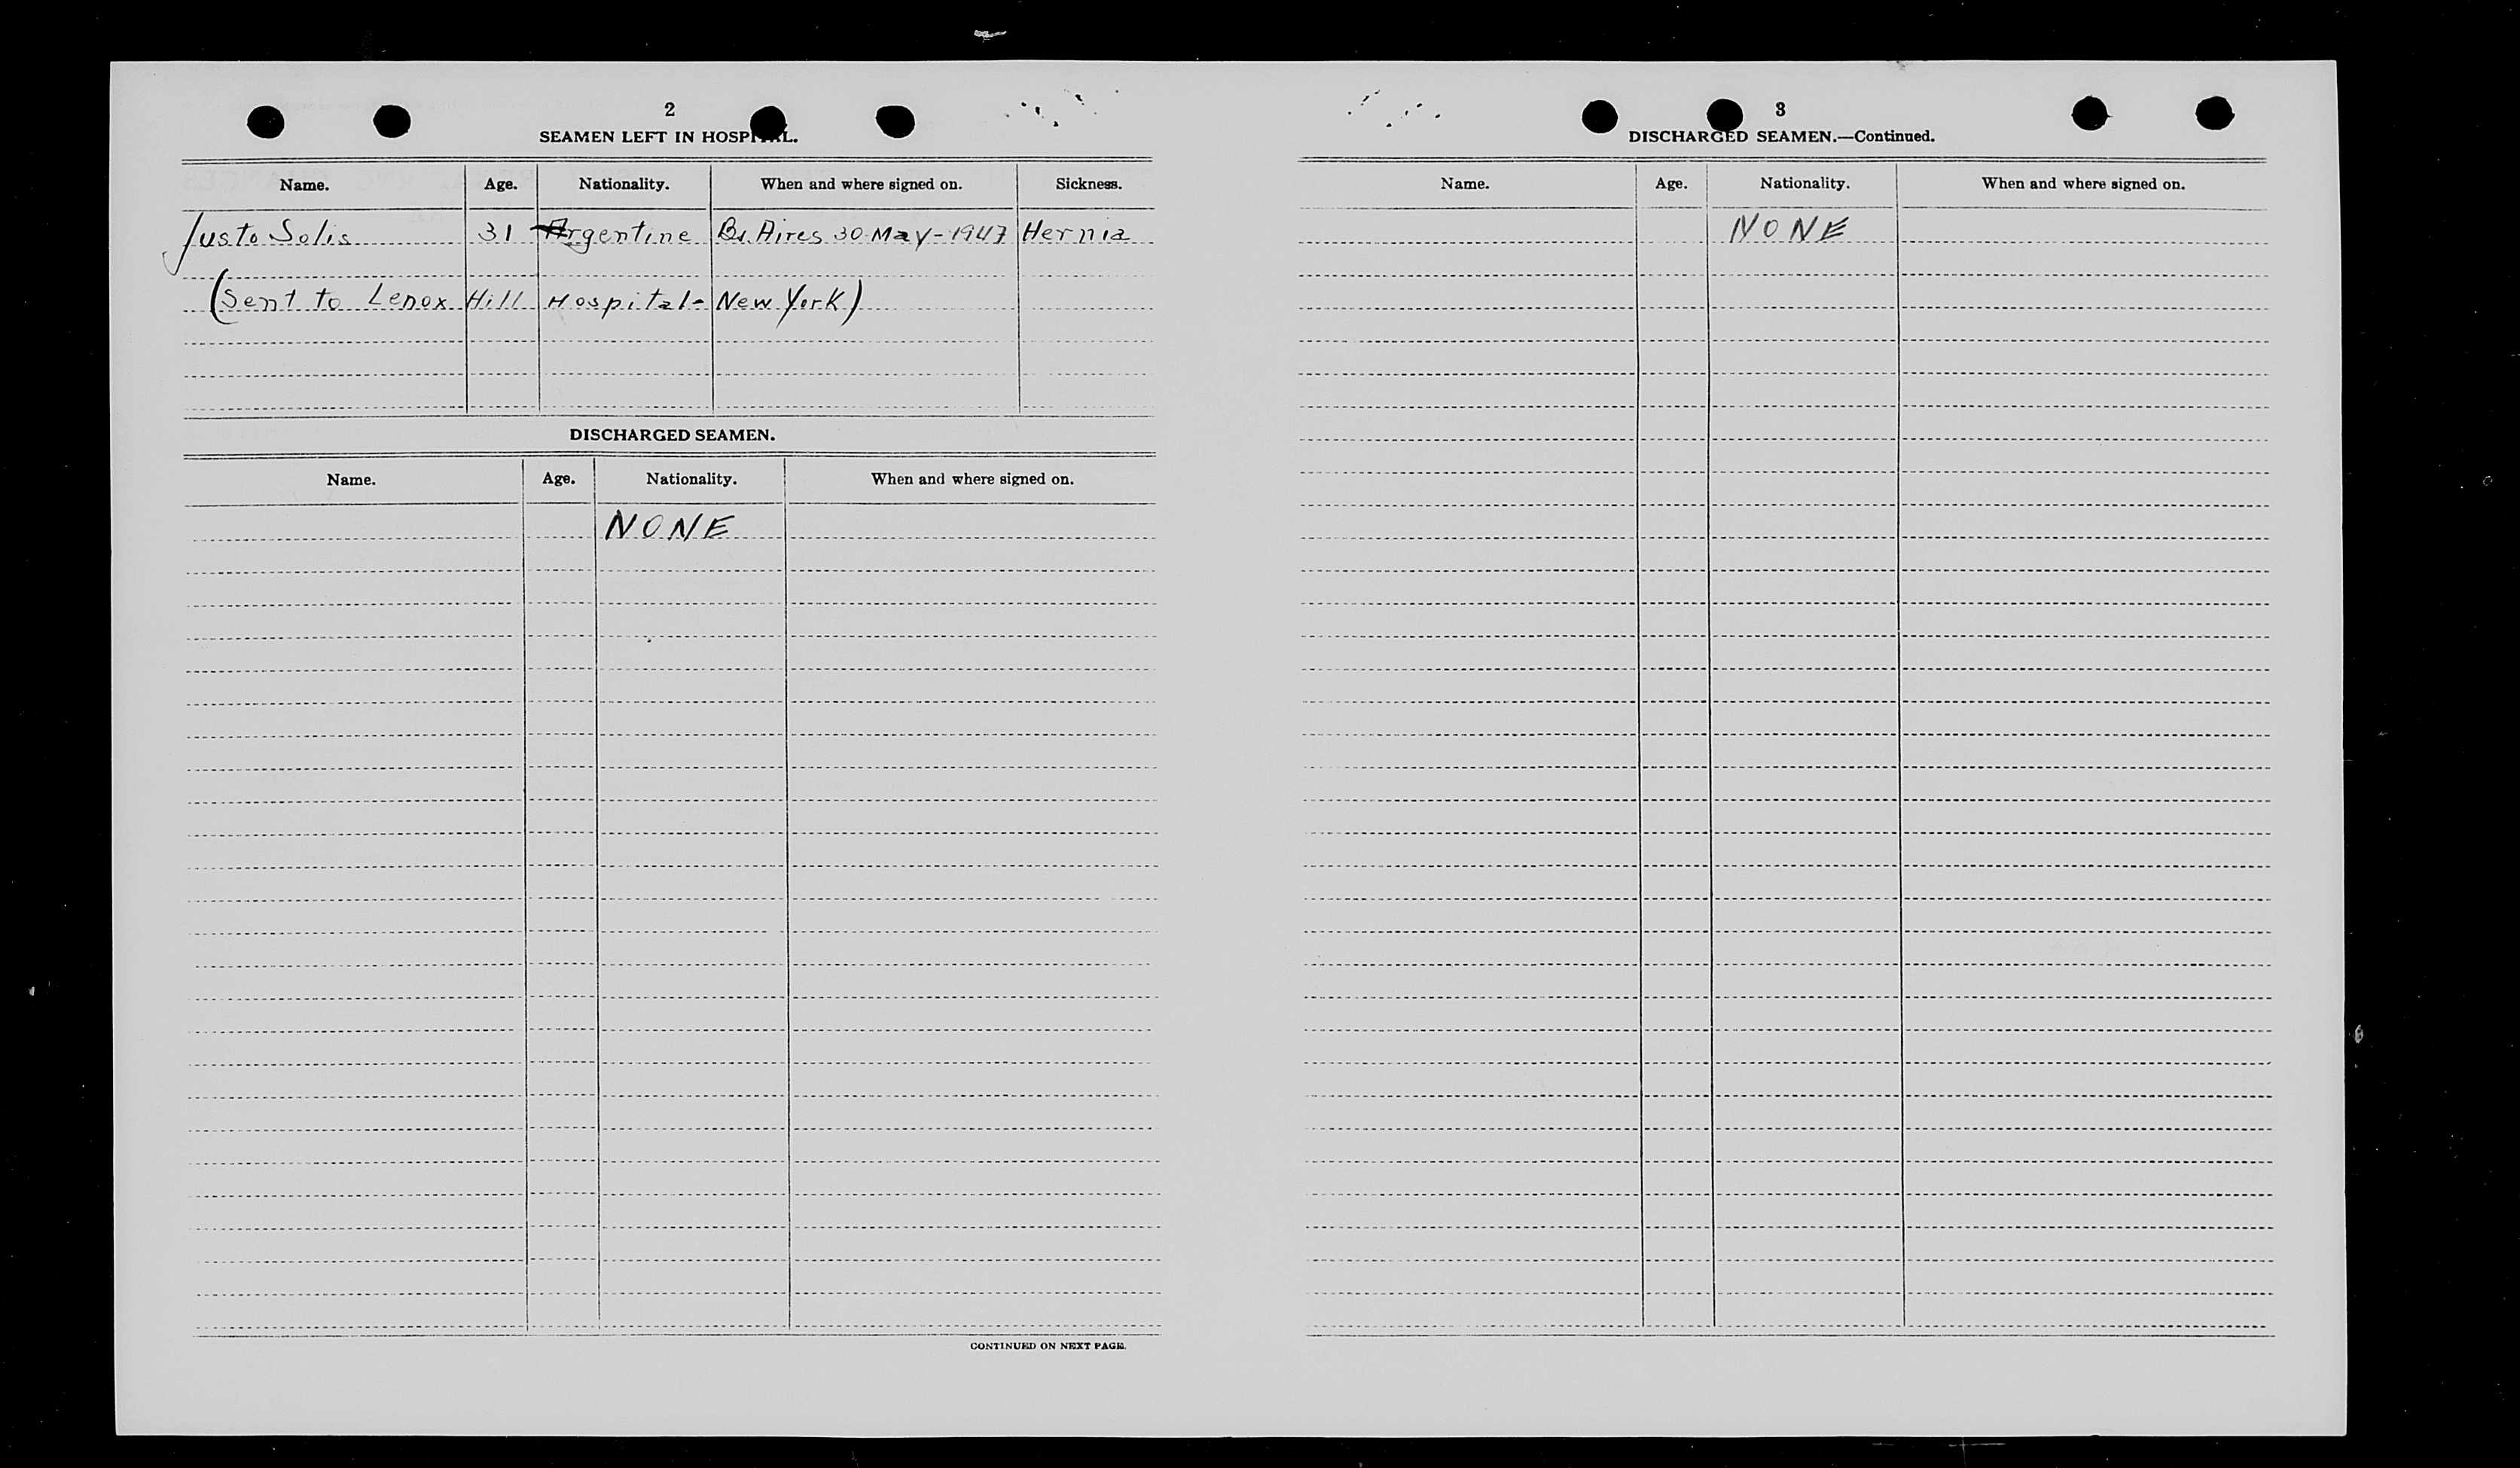 2
SEAMEN LEFT IN HOSPITAL.
Name. Age. Nationality. When and where signed on. Sickness.
Justo Solis 31 Argentine Bs. Aires 30 May-1947 Hernia
(Sent to Lenox Hill Hospital- New York)
DISCHARGED SEAMEN.
Name. Age. Nationality. When and where signed on.
NONE
CONTINUED ON NEXT PAGE.
3
DISCHARGED SEAMEN.—Continued.
Name. Age. Nationality. When and where signed on.
NONE